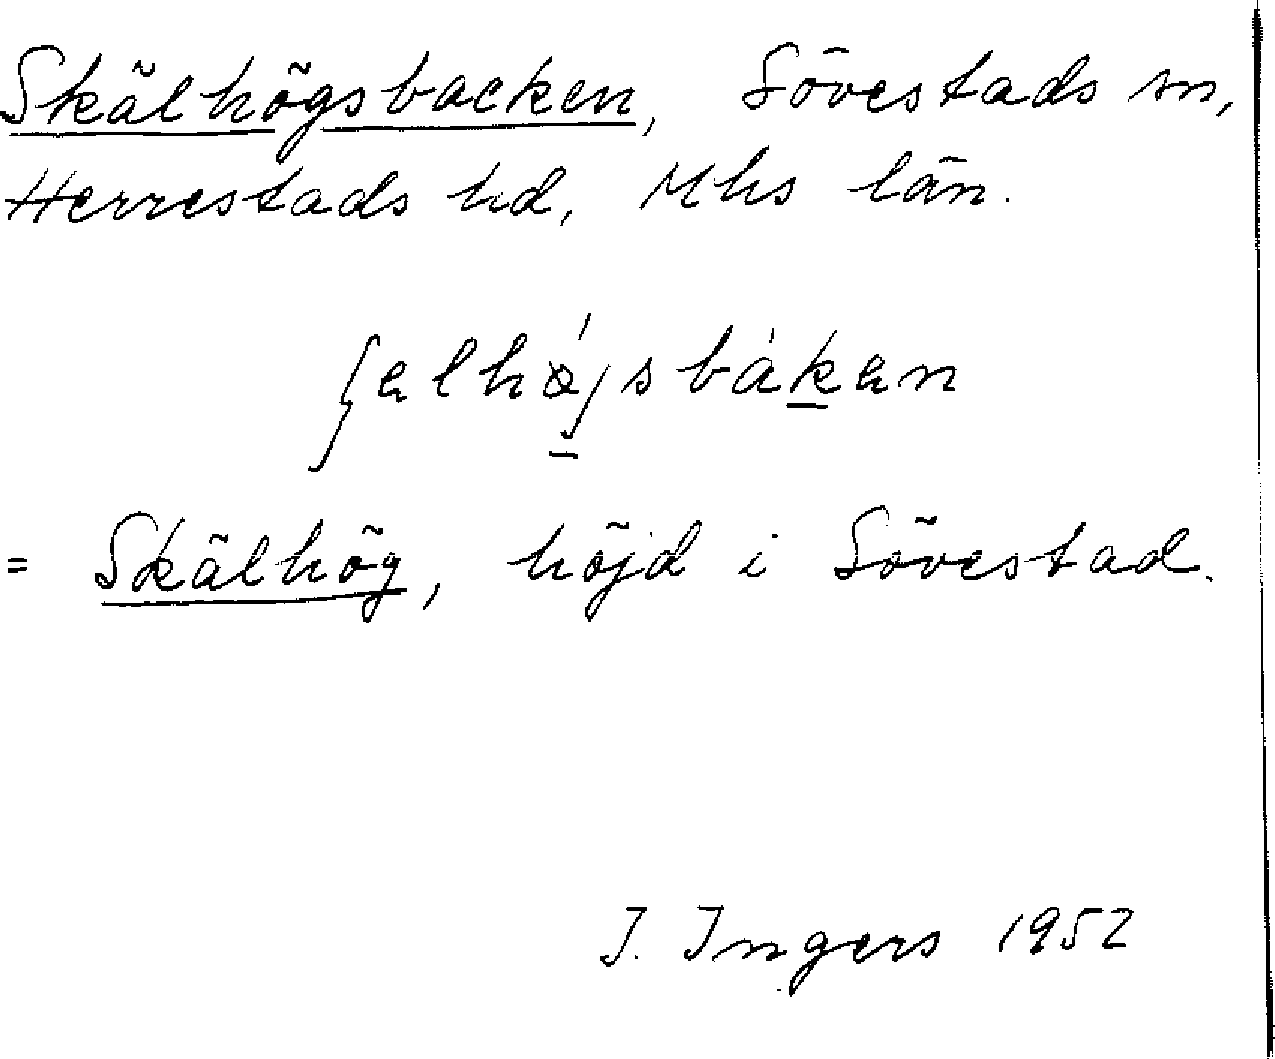 Skälhögsbacken, Sövestads sn,
Herrestads hd, Mhs län.
ʃɐlhøjsbàkɐn
= Skälhög, höjd i Sövestad.
I. Ingers 1952